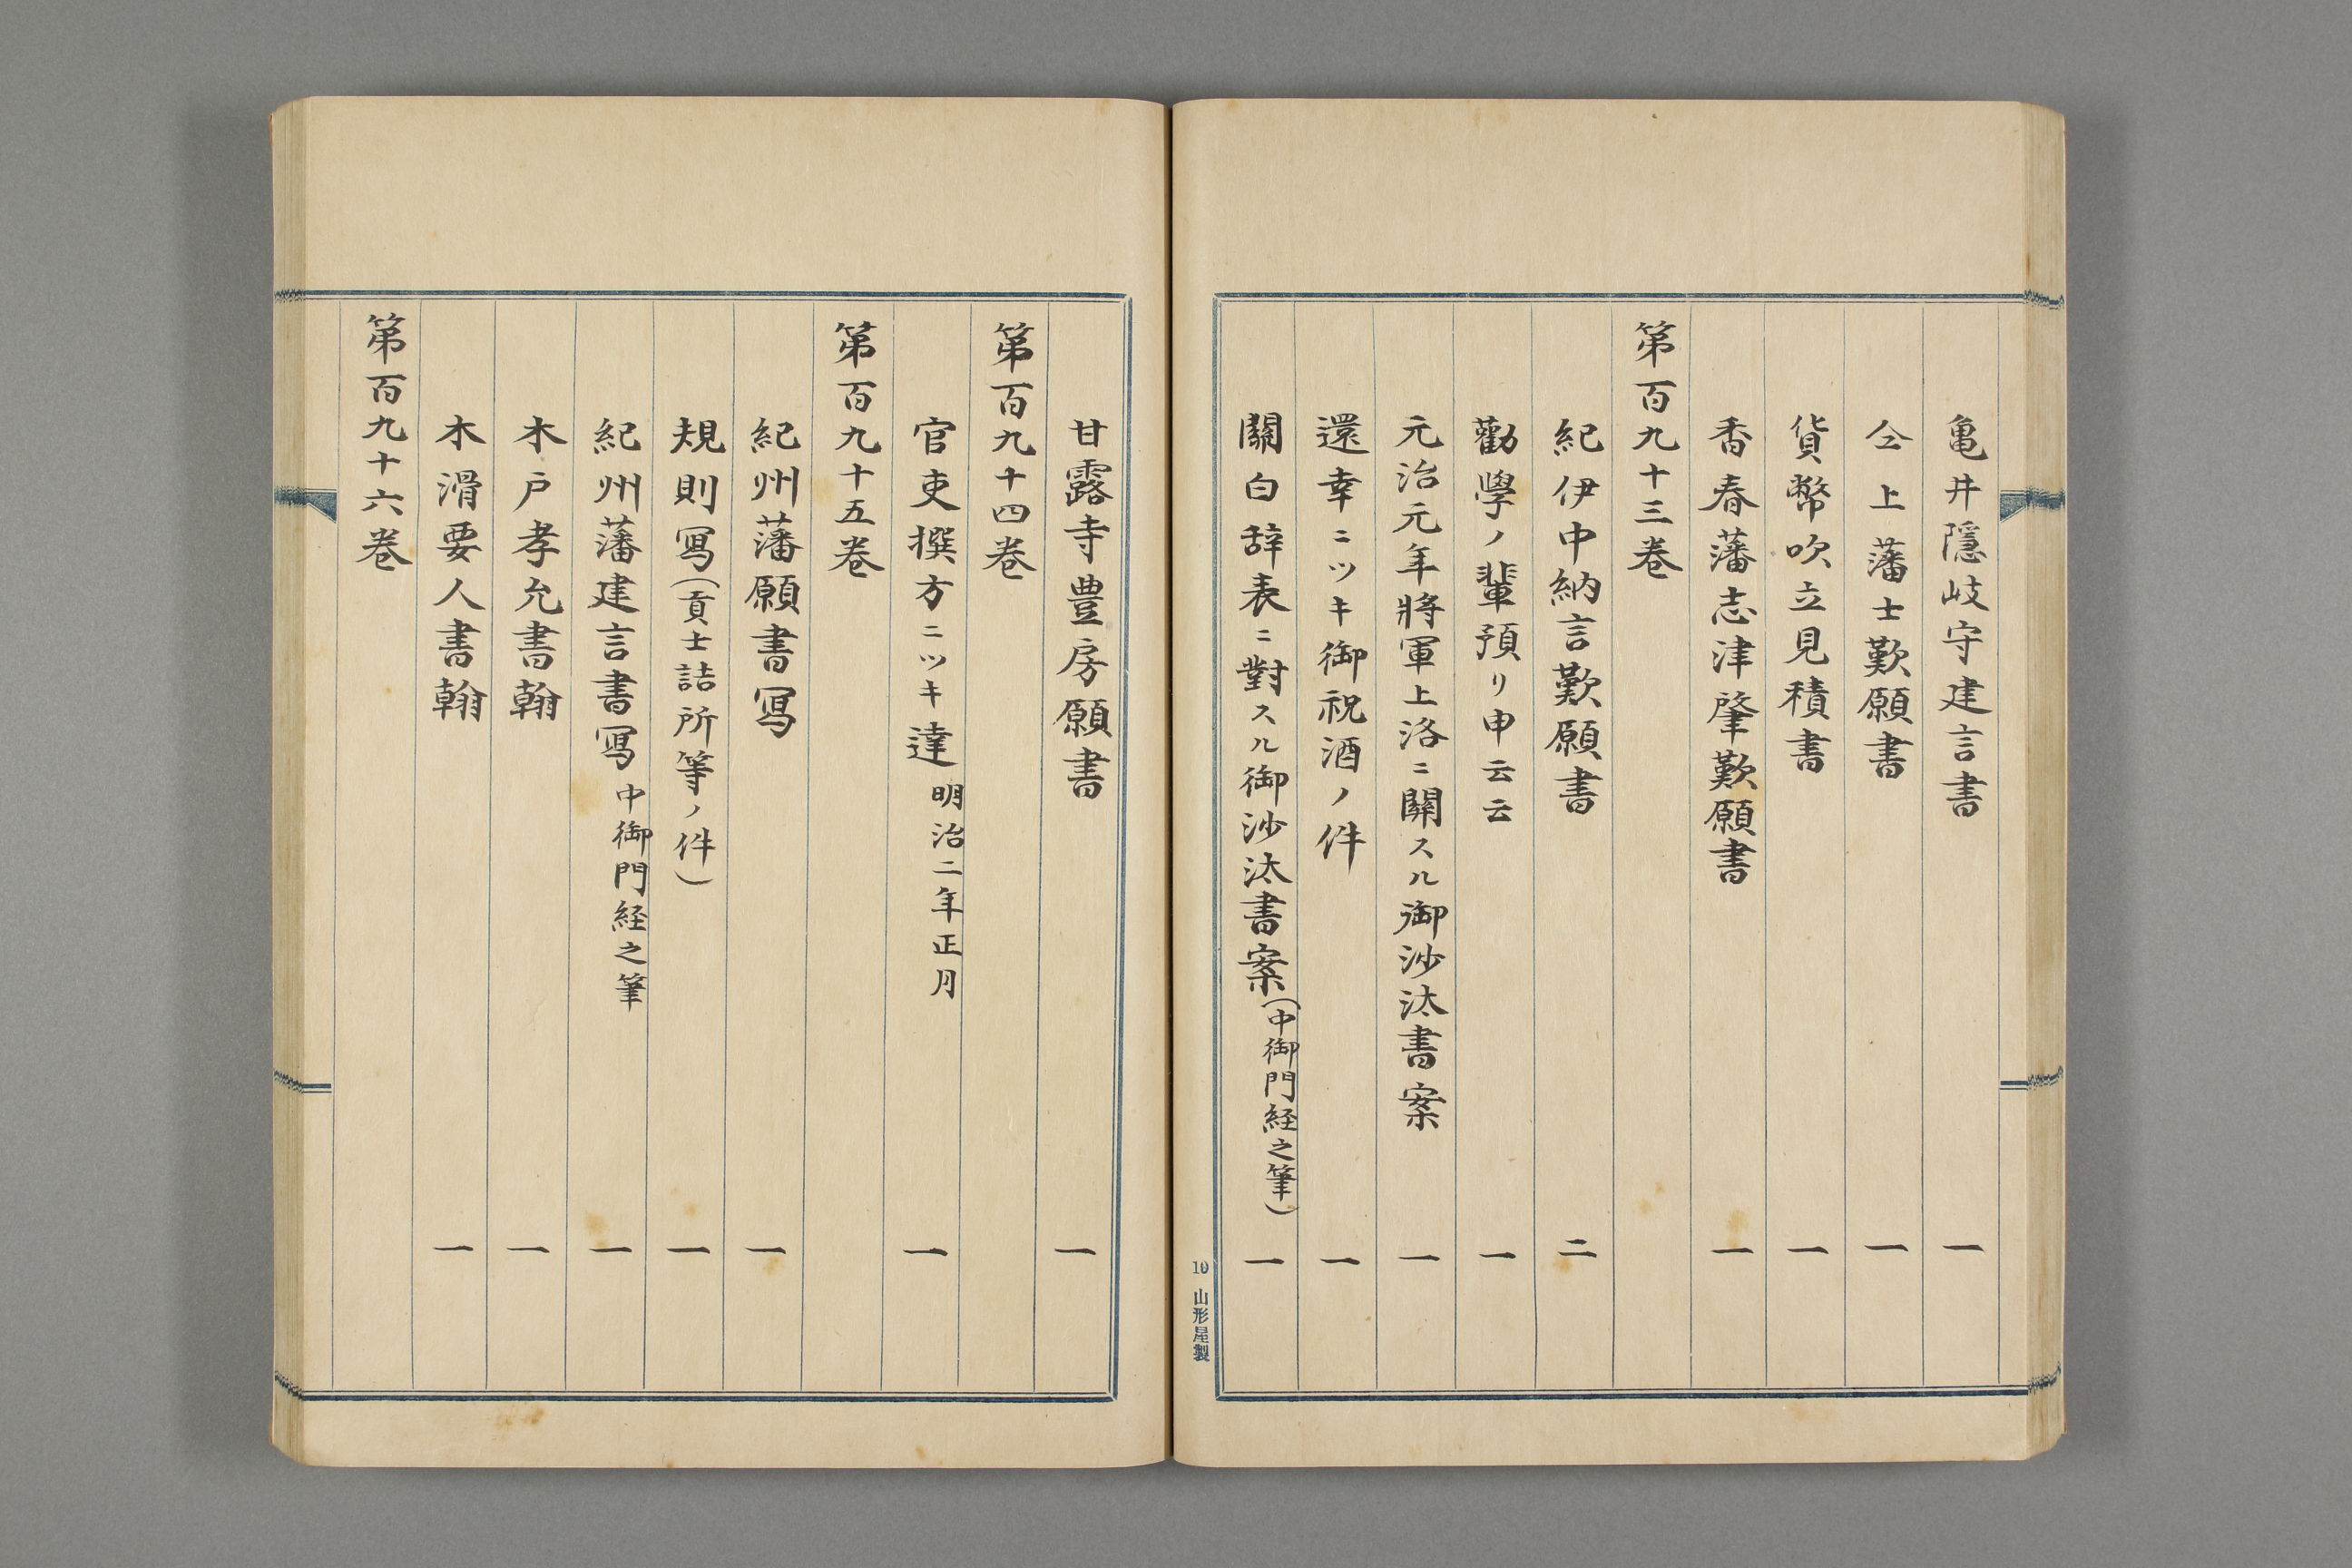 亀井隠岐守建言書 一
仝上藩士歎願書 一
貨幣吹立見積書 一
香春藩志津肇歎願書 一
第百九十三巻
紀伊中納言歎願書 二
勸學ノ輩預リ申云云 一
元治元年將軍上洛ニ關スル御沙汰書案 一
還幸ニツキ御祝酒ノ件 一
關白辞表ニ對スル御沙汰書案(中御門経之筆) 一
10 山形屋製
甘露寺豊房願書 一
第百九十四巻
官吏撰方ニツキ達 明治二年正月 一
第百九十五巻
紀州藩願書写 一
規則寫(貢士詰所等ノ件) 一
紀州藩建言書寫 中御門経之筆 一
木戸孝允書翰 一
木滑要人書翰 一
第百九十六巻